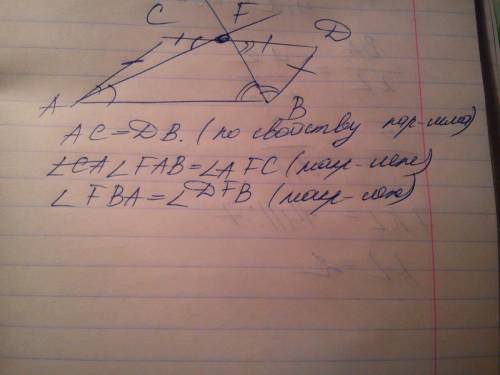 C F D
A B
AC = DB. (по свойству пар-мма)
∠CA∠FAB = ∠AFC (накр-леж)
∠FBA = ∠DFB (накр-леж)